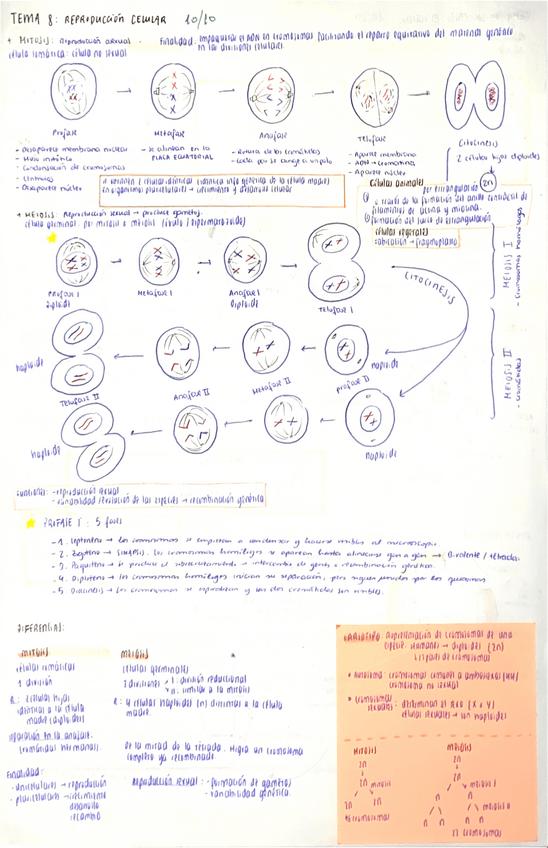 TEMA 8: REPRODUCCIÓN CELULAR 10/10
+ MITOSIS: Reproducción asexual. Finalidad: empaquetar el ADN en cromosomas facilitando el reparto equitativo del material genético
en las divisiones celulares.
célula somática: célula no sexual
Profase
Metafase
Anafase
Telofase
Citocinesis
- Desaparece membrana nuclear
- Huso mitótico
- Condensación de cromosomas
- Centriolos
- Desaparece núcleo
- Se alinean en la
PLACA ECUATORIAL
- Rotura de los centrómeros
- Cada
- Aparece membrana
→ cromatina
- Aparece núcleo
2 células hijas diploides
2n
se obtienen 2 células idénticas (idéntica info genética de la célula madre)
en organismos pluricelulares → crecimiento y
celular
Células animales
por estrangulación
① a través de la formación del anillo contráctil de
filamentos de actina y miosina.
② formación del surco de estrangulación
células vegetales
tabicación → fragmoplasto
+ MEIOSIS: Reproducción sexual → produce gametos.
célula germinal: por mitosis o meiosis (óvulo / espermatozoide)
Profase I
Diploide
Metafase I
Anafase I
Diploide
Telofase I
CITOCINESIS
MEIOSIS I
- Cromosomas homólogos
haploide
Telofase II
Anafase II
Metafase II
profase II
haploide
MEIOSIS II
- cromátidas
haploide
haploide
Funciones: - reproducción sexual
- variabilidad/evolución de las especies → recombinación genética
PROFASE I: 5 fases
- 1. Leptoteno → los cromosomas se empiezan a condensar y hacerse visibles al microscopio.
- 2. Zigoteno → (sinapsis). los cromosomas homólogos se aparean hasta alinearse gen a gen → Bivalente / tétrada.
- 3. Paquiteno → se produce el sobrecruzamiento → intercambio de genes → recombinación genética.
- 4. Diploteno → los cromosomas homólogos inician su separación, pero siguen unidos por los quiasmas
- 5. Diacinesis → los cromosomas se y sus dos cromátidas son visibles.
DIFERENCIAS:
MITOSIS
células somáticas
1 división
R: 2 células hijas
idénticas a la célula
madre (diploides)
separación en la anafase:
cromátidas hermanas.
Finalidad:
- unicelulares → reproducción
- pluricelulares → crecimiento
desarrollo
recambio
MEIOSIS
células germinales
2 divisiones → I: división reduccional
→ II: similar a la mitosis
R: 4 células haploides (n) distintas a la célula
madre.
de la mitad de la tétrada. Migra un cromosoma
completo ya recombinado.
Reproducción sexual: - formación de gametos
- variabilidad genética.
CARIOTIPO: Representación de cromosomas de una
especie. Humanos → diploides (2n)
23 pares de cromosomas
• Autosoma: cromosomas comunes a ambos sexos
cromosoma no sexual
• Cromosomas
sexuales: determinan el sexo (X e Y)
células sexuales → son haploides
MITOSIS
2n
↓
2n mitosis
2n 2n
46 cromosomas
MEIOSIS
2n
↓
2n
meiosis I
n n
meiosis II
n n
23 cromosomas